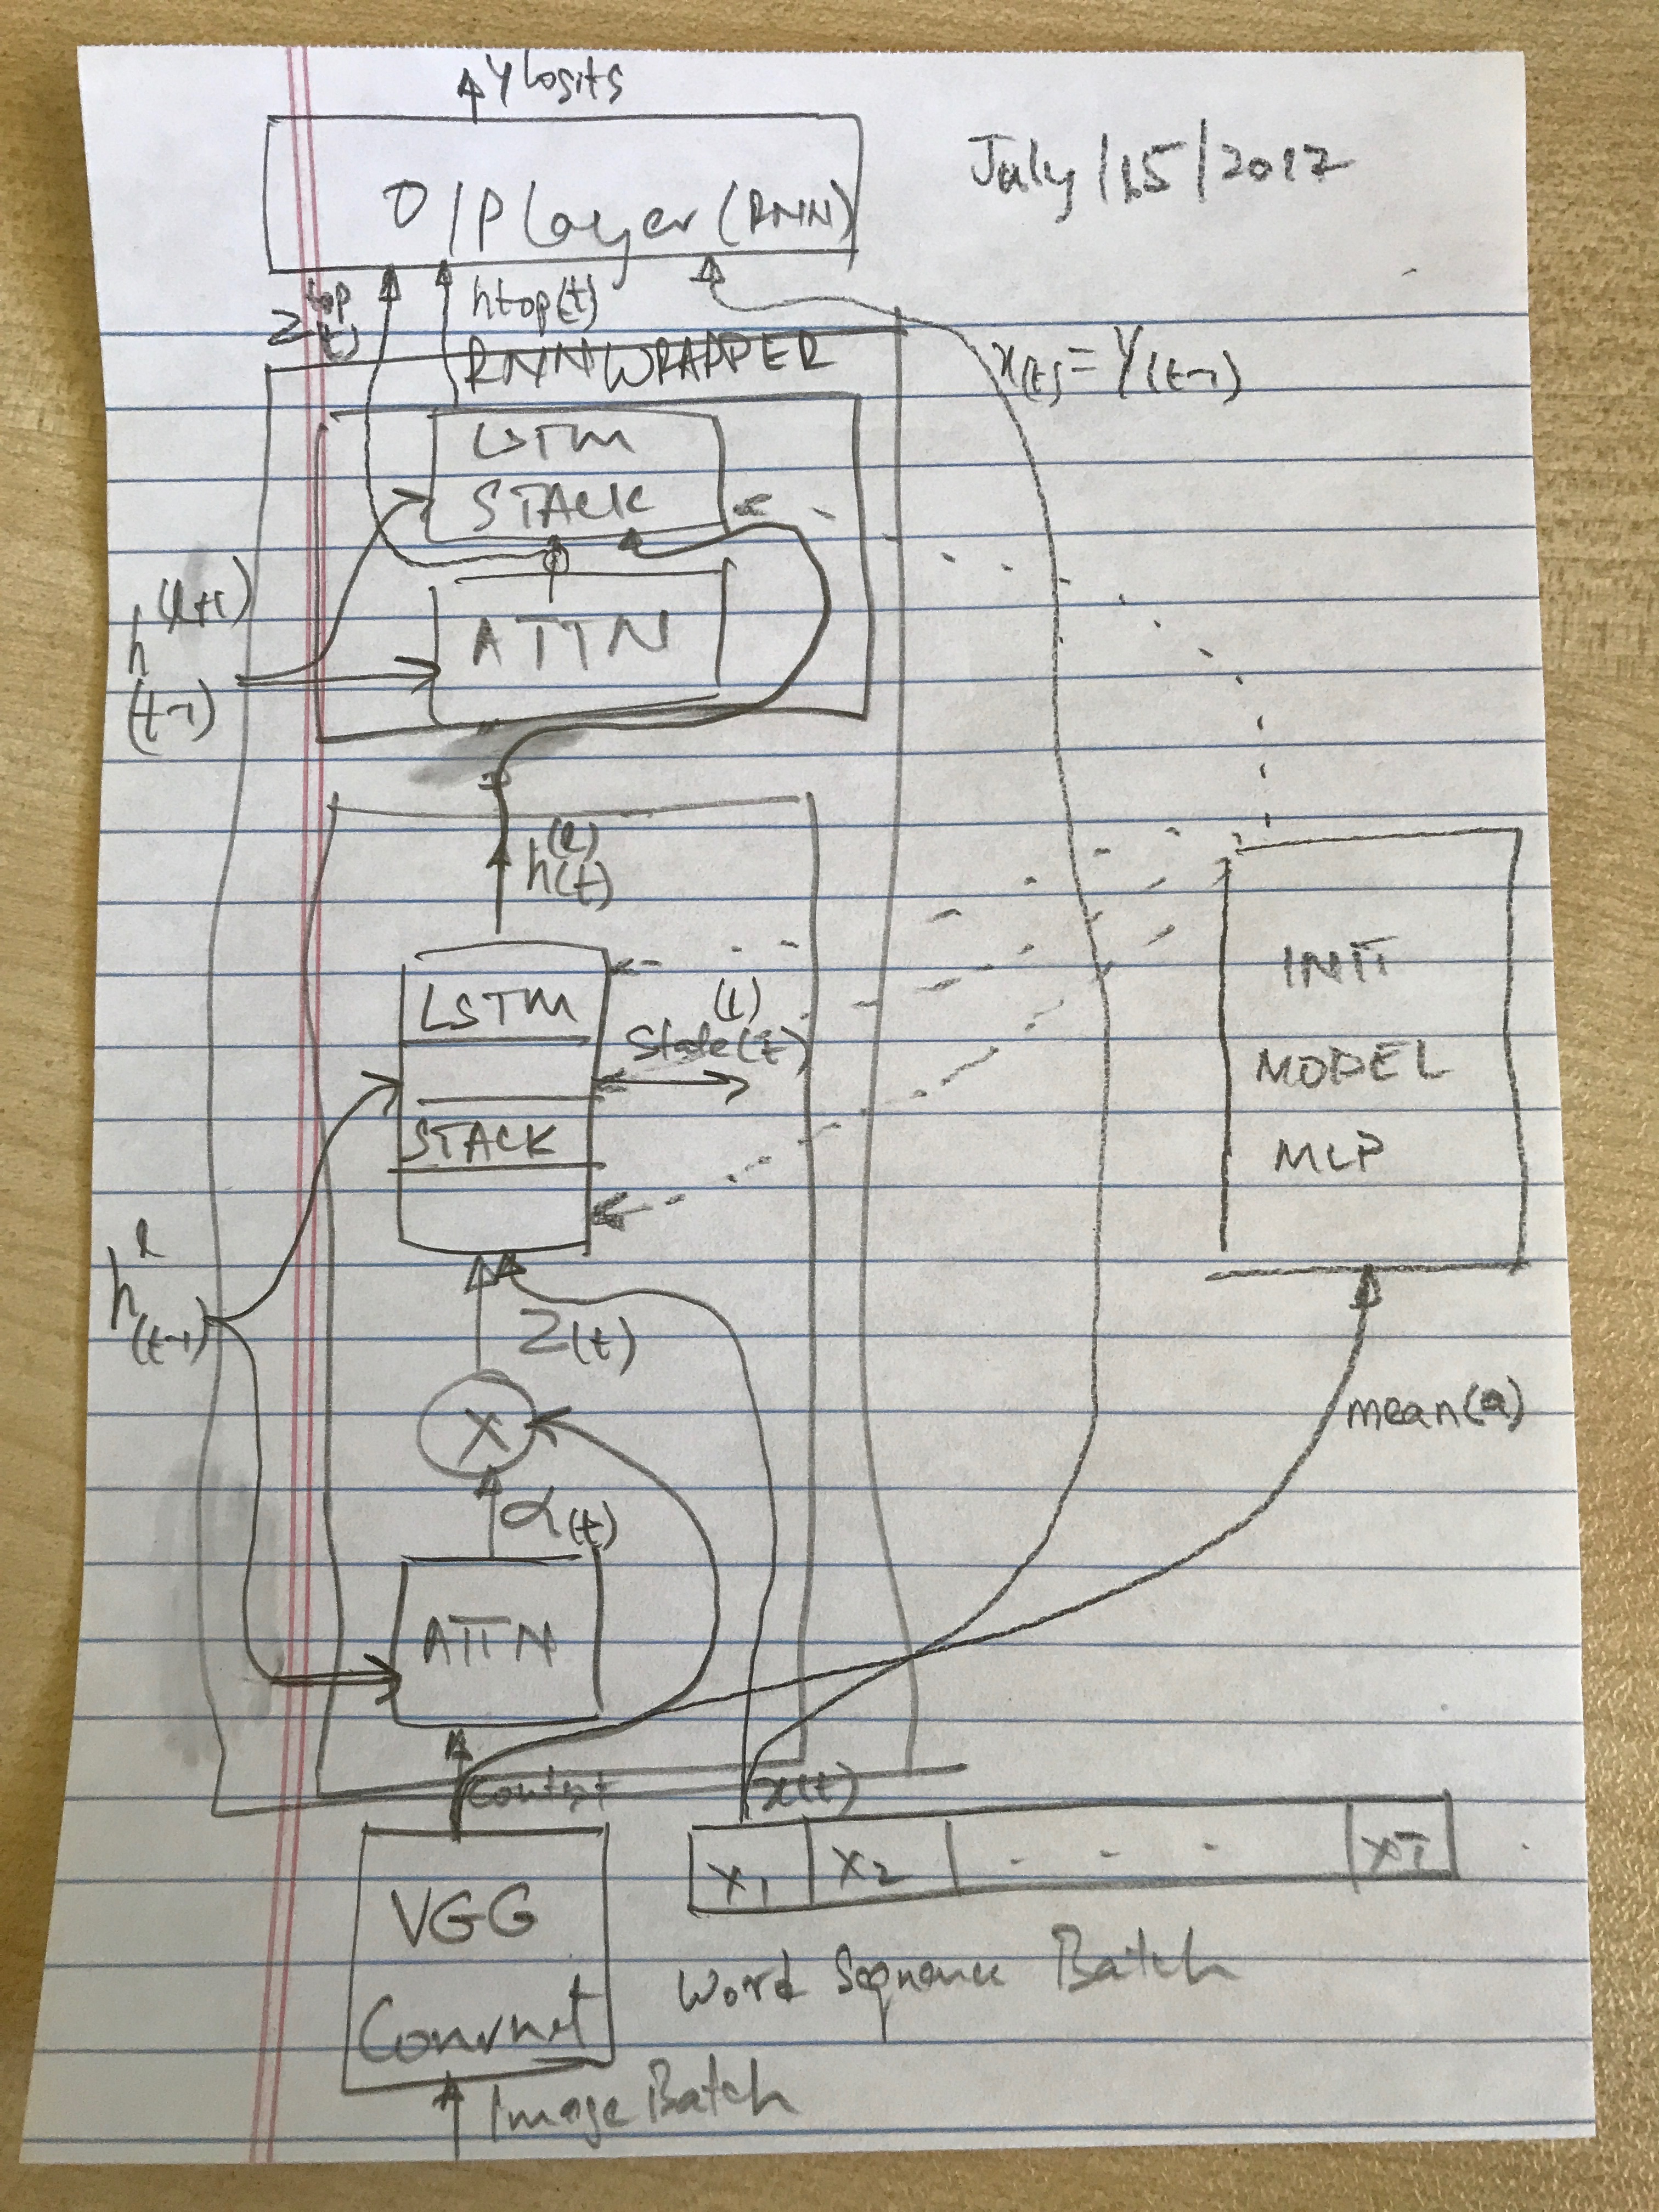 Y logits
July/15/2017
O/P Layer (RNN)
z top (t)
h top(t)
RNN WRAPPER
x(t) = y(t-1)
LSTM
STACK
h (l+1) (t-1)
ATTN
h (l) (t)
INIT
MODEL
MLP
LSTM
STACK
(l)
State(t)
h l (t-1)
Z(t)
X
mean(a)
α(t)
ATTN
Context
x(t)
X1 X2 - - - XT
VGG
Convnet
Word Sequence Batch
Image Batch